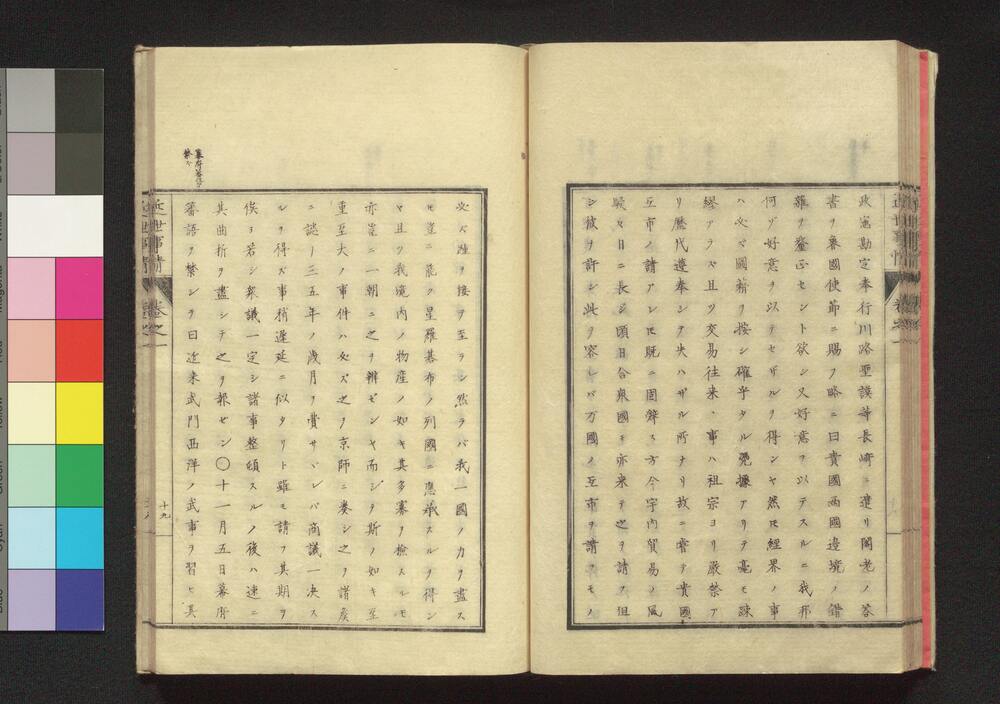 政憲勘定奉行川路聖謨等長崎ニ遣リ閣老ノ答
書ヲ魯國使節ニ賜フ略ニ曰貴國両國邉境ノ錯
雜ヲ釐正セント欲シ又好意ヲ以テスルニ我邦
何ゾ好意ヲ以テセザルヲ得ンヤ然ㇾ𪜈經界ノ事
ハ必ズ國籍ヲ按シ確乎タル凴據アリテ毫モ疎
繆アラズ且ツ交易往来ノ事ハ祖宗ヨリ厳禁ア
リ歴代遵奉シテ失ハザル所ナリ故ニ曾テ貴國
互市ノ請アレ𪜈既ニ固辞ス方今宇内貿易ノ風
駸々日ニ長シ頃日合衆國モ亦来テ之ヲ請フ但
シ彼ヲ許シ此ヲ容レバ万國ノ互市ヲ請フモノ
必ズ踵ヲ接ヲ至ラン然ラバ我一國ノ力ヲ盡ス
モ豈ニ能ク星羅碁布ノ列國ニ應承スルヲ得ン
ヤ且ツ我境内ノ物産ノ如キ其多寡ヲ檢スルモ
亦豈ニ一朝ニ之ヲ辨ゼンヤ而シテ斯ノ如キ至
重至大ノ事件ハ必ズ之ヲ京師ニ奏シ之ヲ諸矦
ニ議リ三五年ノ歳月ヲ費サヾレバ商議一決ス
ルヲ得ズ事稍遅延ニ似タリト雖モ請フ其期ヲ
俟ヨ若シ衆議一定シ諸事整頓スルノ後ハ速ニ
其曲折ヲ盡シテ之ヲ報ゼン〇十一月五日幕府
蕃語ヲ禁シテ曰近来武門西洋ノ武事ヲ習ヒ其
近世事情
巻之一
十九